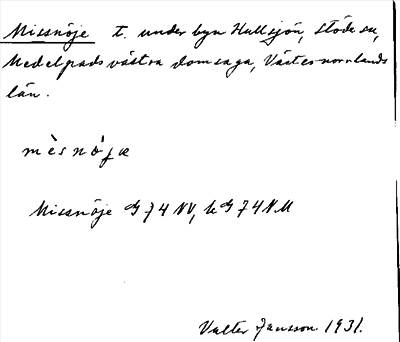 Missnöje t. under byn Hullsjön, Stöde sn,
Medelpads västra domsaga, Västernorrlands
län.
mèsnöjæ
Missnöje G 74 NV, kG 74 NM
Valter Jansson 1931.